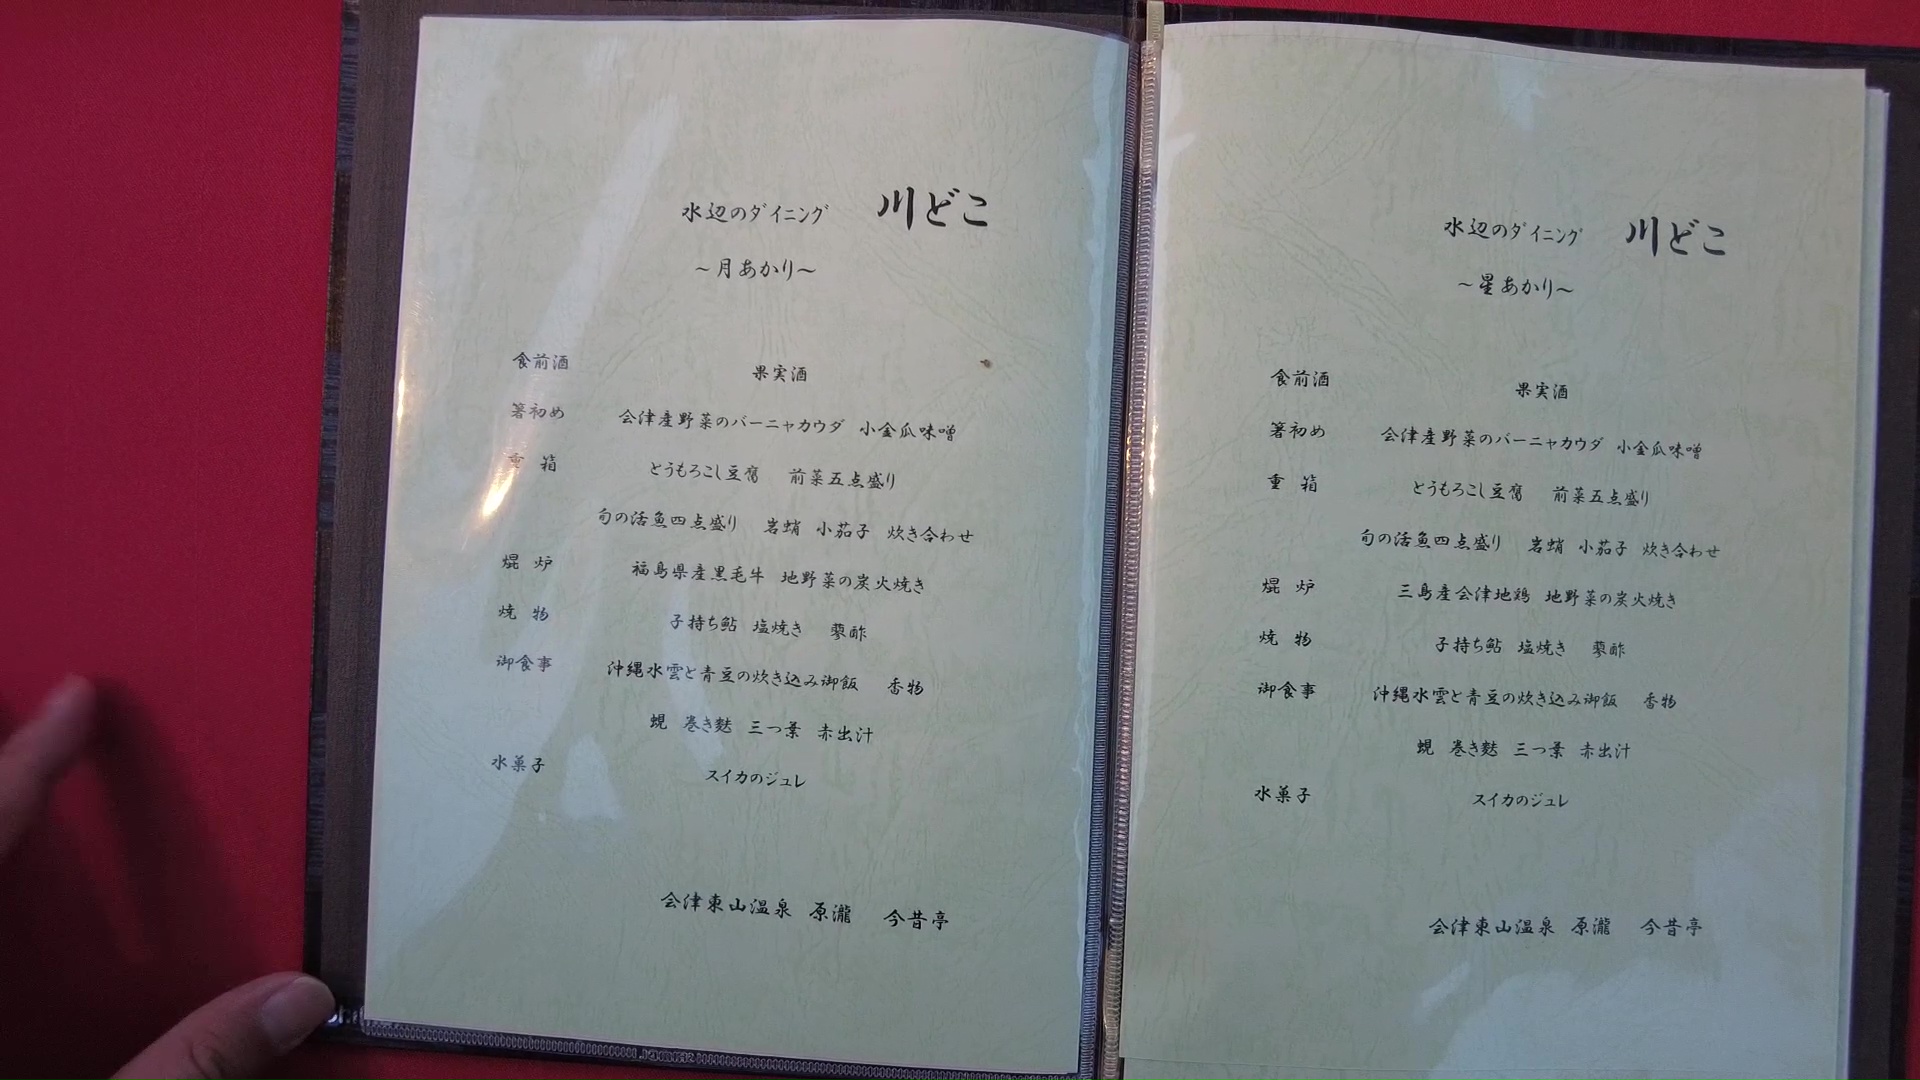 水辺のダイニング 川どこ
～月あかり～
食前酒 果実酒
箸初め 会津産野菜のバーニャカウダ 小金瓜味噌
重箱 とうもろこし豆腐 前菜五点盛り
旬の活魚四点盛り 岩蛸 小茄子 炊き合わせ
焜炉 福島県産黒毛牛 地野菜の炭火焼き
焼物 子持ち鮎 塩焼き 蓼酢
御食事 沖縄水雲と青豆の炊き込み御飯 香物
蜆 巻き麩 三つ葉 赤出汁
水菓子 スイカのジュレ
会津東山温泉 原瀧 今昔亭
水辺のダイニング 川どこ
～星あかり～
食前酒 果実酒
箸初め 会津産野菜のバーニャカウダ 小金瓜味噌
重箱 とうもろこし豆腐 前菜五点盛り
旬の活魚四点盛り 岩蛸 小茄子 炊き合わせ
焜炉 三島産会津地鶏 地野菜の炭火焼き
焼物 子持ち鮎 塩焼き 蓼酢
御食事 沖縄水雲と青豆の炊き込み御飯 香物
蜆 巻き麩 三つ葉 赤出汁
水菓子 スイカのジュレ
会津東山温泉 原瀧 今昔亭